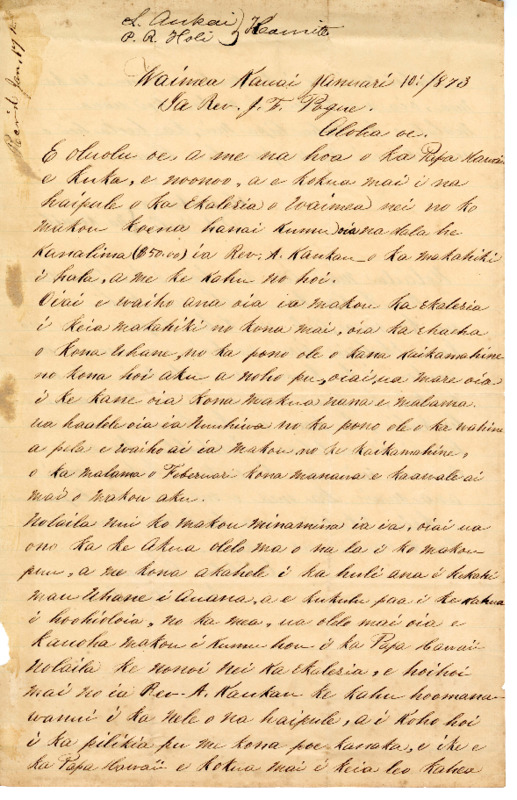 L. Aukai
P. R. Holi } Komite
Rec'd Jan. 17th
Waimea Kauai Januari 10: 1873
Ia Rev. J. F. Pogue.
Aloha oe.
E oluolu oe, a me na hoa o ka Papa Hawaii
e kuka, e noonoo, a e kokua mai i na
haipule o ka Ekalesia o Waimea nei no ko
makou koena hanai kumu ia na dala he
Kanalima ($50.00) ia Rev. A. Kaukau o ka makahiki
i hala, a me ke kahu no hoi.
Oiai e waiho ana oia ia makou ka Ekalesia
i keia makahiki no kona mai, oia ka ehaeha
o kona Uhane, no ka pono ole o kana kaikamahine
no kona hoi aku a noho pu, oiai, ua mare oia
i ke kane oia kona makua nana e malama.
ua haalele oia ia Nuuhiva no ka pono ole o ka wahine
a pela e waiho ai ia makou no ke kaikamahine,
o ka malama o Feberuari kona manawa e kaawale ai
mai o makou aku.
Nolaila nui ko makou minamina ia ia, oiai ua
ono ka ke Akua olelo ma o na la i ko makou
puu, a me kona akahele i ka huli ana i kekahi
mau Uhane i Auana, a e kukulu paa i ke kahua
i hoohioloia, no ka mea, ua olelo mai oia e
kauoha makou i kumu hou i ka Papa Hawaii
Nolaila ke nonoi nei ka Ekalesia, e hoihoi
mai no ia Rev. A. Kaukau ke kahu hoomana-
wanui i ka nele o na haipule, a i koho hoi
i ka pilikia pu me kona poe kanaka, e ike e
ka Papa Hawaii e kokua mai i keia leo kahea